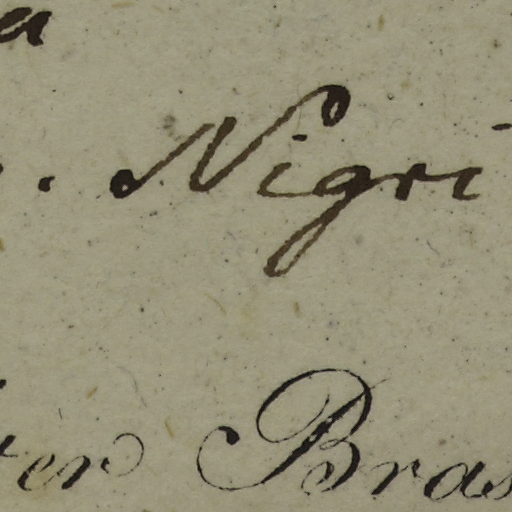 a
. Nigri
ter Bras